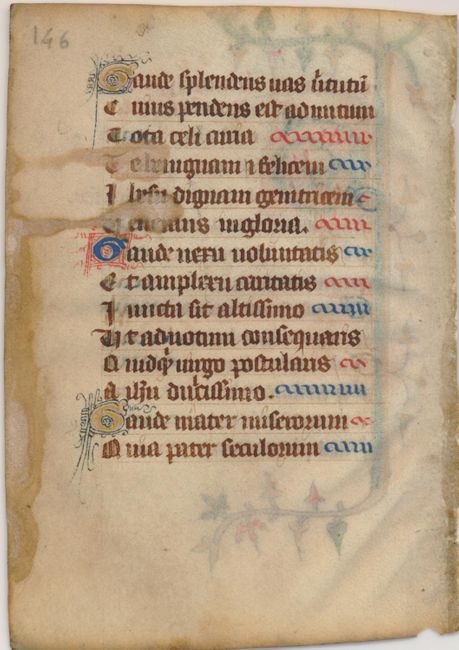 146
Gaude splendens uas uirtutū
Cuius pendens est ad nutum
Tota celi curia
Te benignam ⁊ felicem
Ihesu dignam genitricem
Venerans in gloria.
Gaude nexu uoluntatis
Et amplexu caritatis
Iuncta sic altissimo
Vt ad uotum consequaris
Quidq̄ uirgo postularis
A ihū dulcissimo.
Gaude mater miserorum
Quia pater seculorum